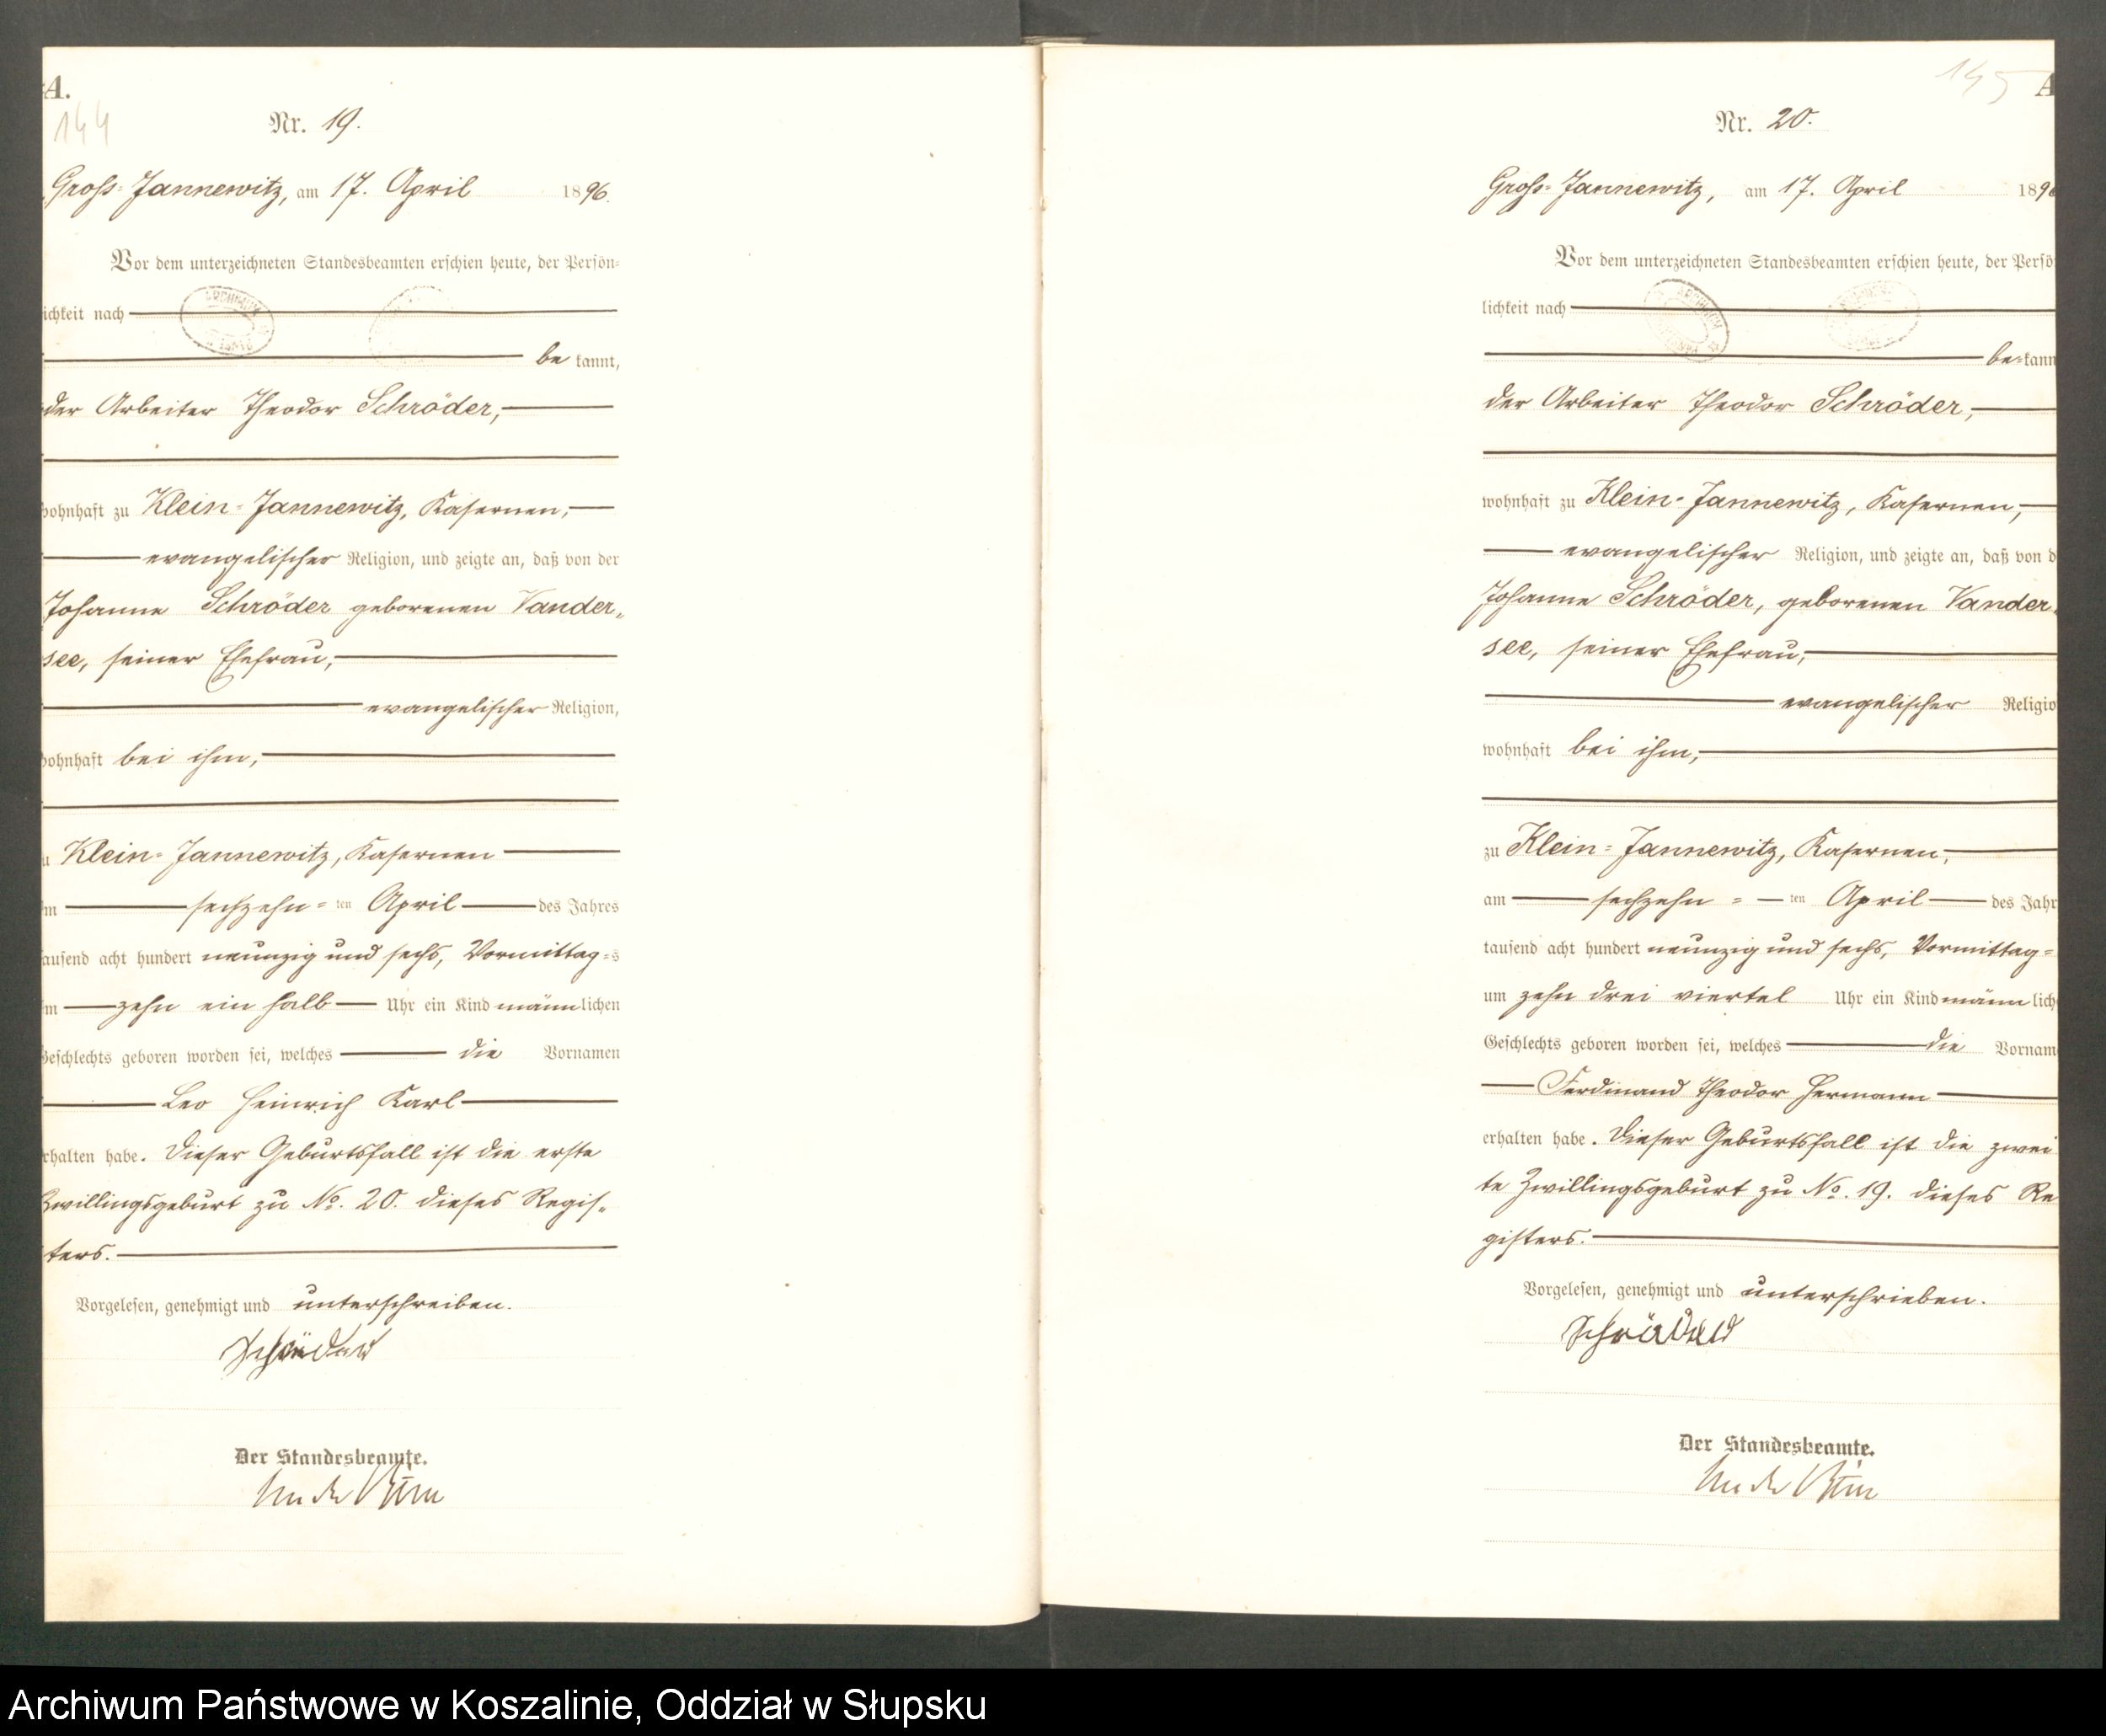 A.
144
Nr. 19.
Groß-Jannewitz, am 17. April 1896.
Vor dem unterzeichneten Standesbeamten erschien heute, der Persön-
ichkeit nach
be kannt,
der Arbeiter Theodor Schröder,
wohnhaft zu Klein-Jannewitz, Kasernen,
evangelischer Religion, und zeigte an, daß von der
Johanne Schröder geborenen Vander-
see, seiner Ehefrau,
evangelischer Religion,
wohnhaft bei ihm,
u Klein-Jannewitz, Kasernen
m sechzehn-ten April des Jahres
ausend acht hundert neunzig und sechs, Vormittag-s
m zehn ein halb Uhr ein Kind männlichen
Geschlechts geboren worden sei, welches die Vornamen
Leo Heinrich Karl
rhalten habe. Dieser Geburtsfall ist die erste
Zwillingsgeburt zu No. 20. dieses Regis-
ters.
Vorgelesen, genehmigt und unterschreiben.
Schröder
Der Standesbeamte.
145
A
Nr. 20.
Groß-Jannewitz, am 17. April 1896
Vor dem unterzeichneten Standesbeamten erschien heute, der Persö
lichkeit nach
be-kann
der Arbeiter Theodor Schröder,
wohnhaft zu Klein-Jannewitz, Kasernen,
evangelischer Religion, und zeigte an, daß von d
Johanne Schröder, geborenen Vander-
see, seiner Ehefrau,
evangelischer Religio
wohnhaft bei ihm,
zu Klein-Jannewitz, Kasernen,
am sechzehn-ten April des Jahr
tausend acht hundert neunzig und sechs, Vormittag-
um zehn drei viertel Uhr ein Kind männlich
Geschlechts geboren worden sei, welches die Vornam
Ferdinand Theodor Hermann
erhalten habe. Dieser Geburtsfall ist die zwei
te Zwillingsgeburt zu No. 19. dieses Re
gisters.
Vorgelesen, genehmigt und unterschrieben.
Schröder
Der Standesbeamte.
Archiwum Państwowe w Koszalinie, Oddział w Słupsku